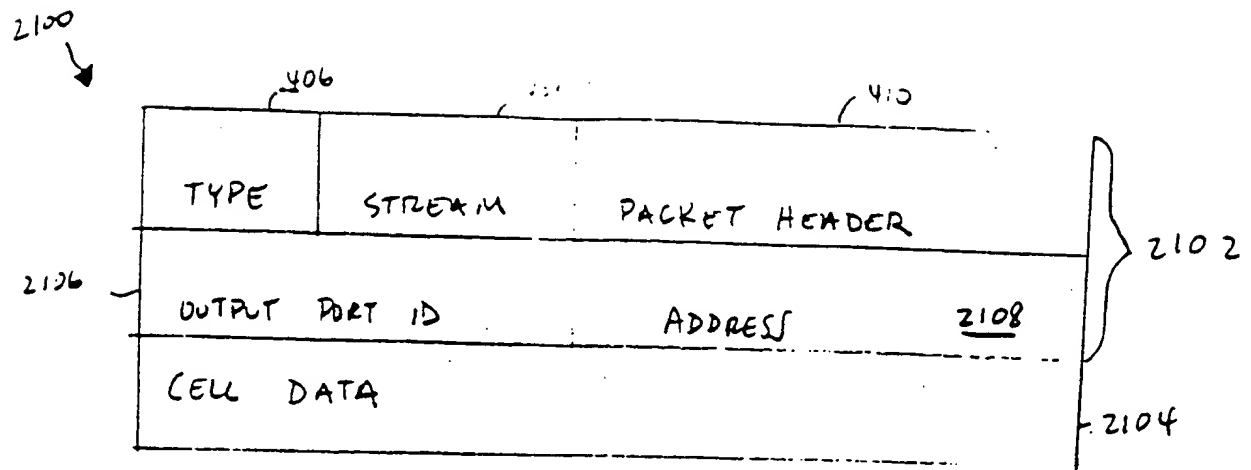 2100
406
410
TYPE STREAM PACKET HEADER
2102
2106
OUTPUT PORT ID ADDRESS 2108
CELL DATA
2104